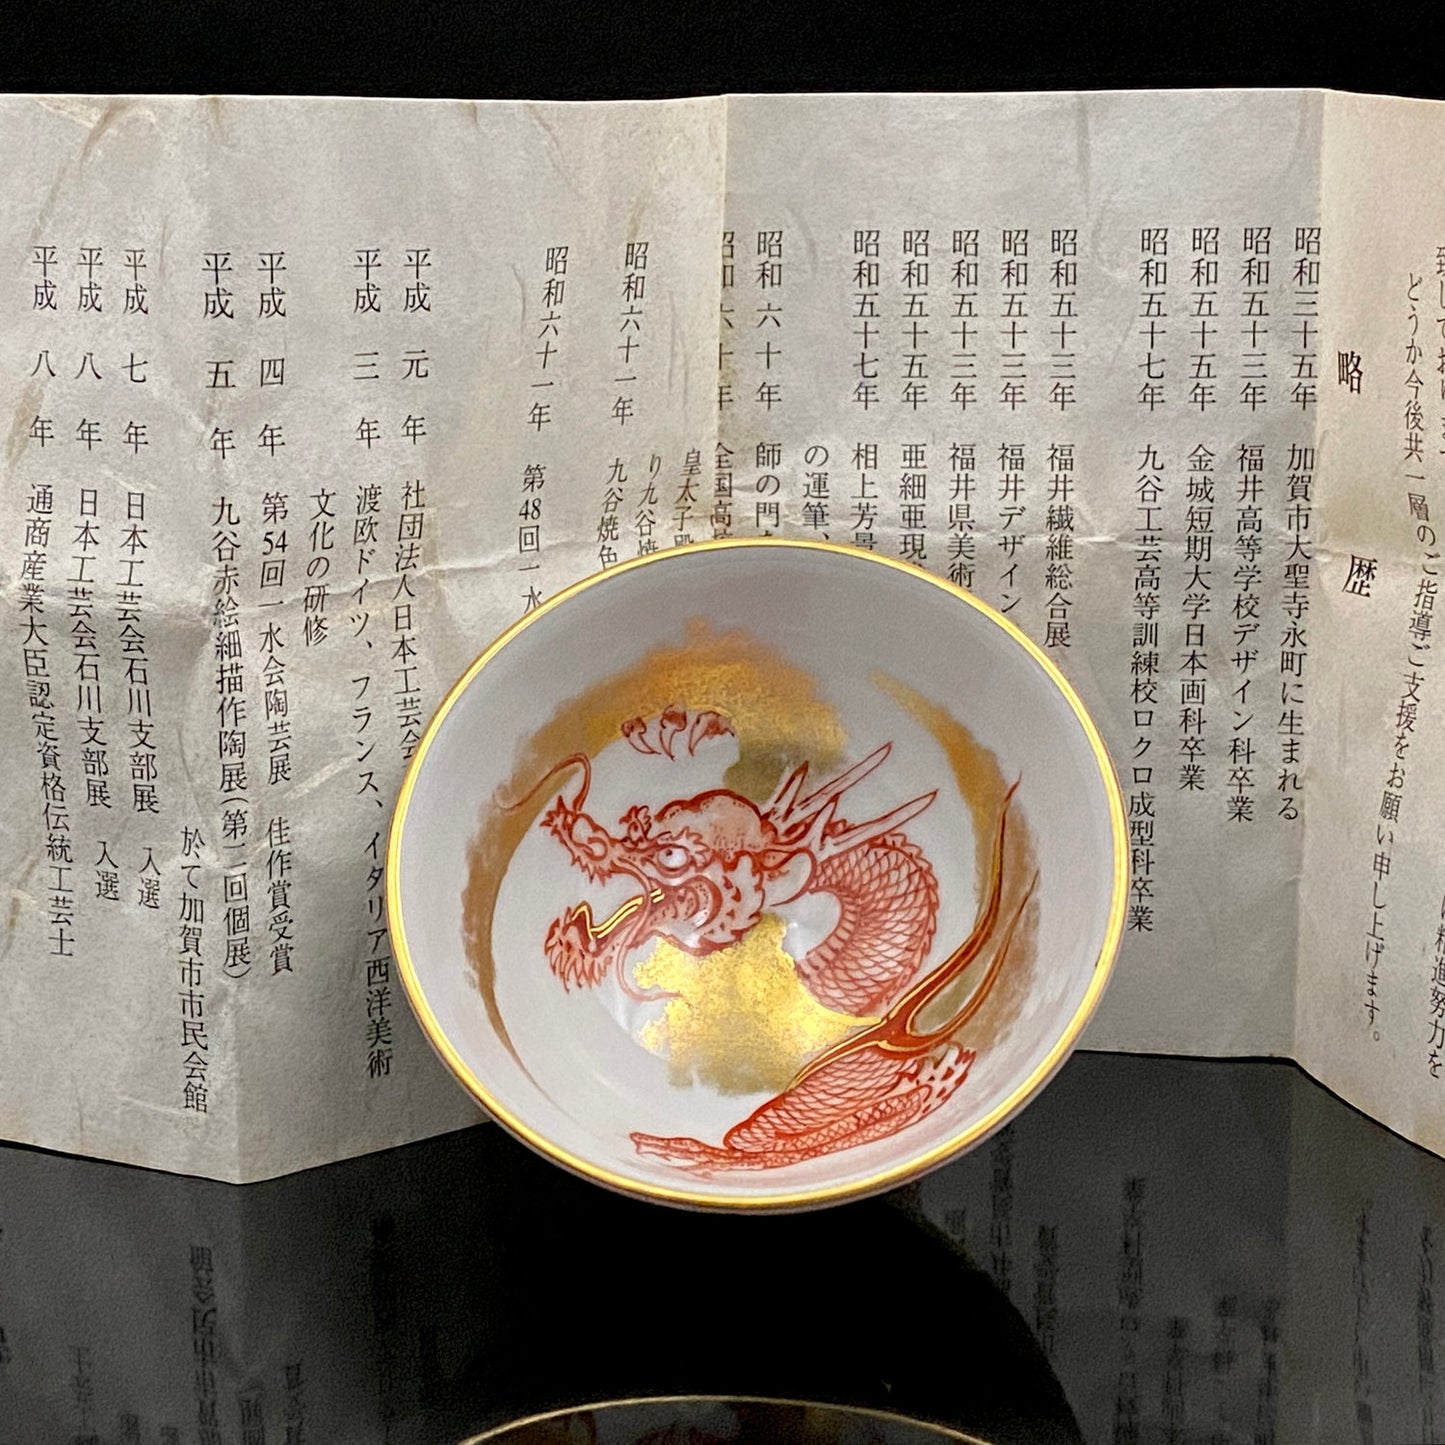 致して
どうか今後共一層のご指導ご支援をお願い申し上げます。
精進努力を
略歴
昭和三十五年 加賀市大聖寺永町に生まれる
昭和五十三年 福井高等学校デザイン科卒業
昭和五十五年 金城短期大学日本画科卒業
昭和五十七年 九谷工芸高等訓練校ロクロ成型科卒業
昭和五十三年 福井繊維総合展
昭和五十三年 福井デザイン
昭和五十三年 福井県美術
昭和五十五年 亜細亜現
昭和五十七年 相上芳景
の運筆、
昭和六十年 師の門
昭和六十年 全国高
皇太子殿
り九谷焼
昭和六十一年 九谷焼色
昭和六十一年 第48回一水
平成元年 社団法人日本工芸会
平成三年 渡欧ドイツ、フランス、イタリア西洋美術
文化の研修
平成四年 第54回一水会陶芸展 佳作賞受賞
平成五年 九谷赤絵細描作陶展(第二回個展)
於て加賀市市民会館
平成七年 日本工芸会石川支部展 入選
平成八年 日本工芸会石川支部展 入選
平成八年 通商産業大臣認定資格伝統工芸士